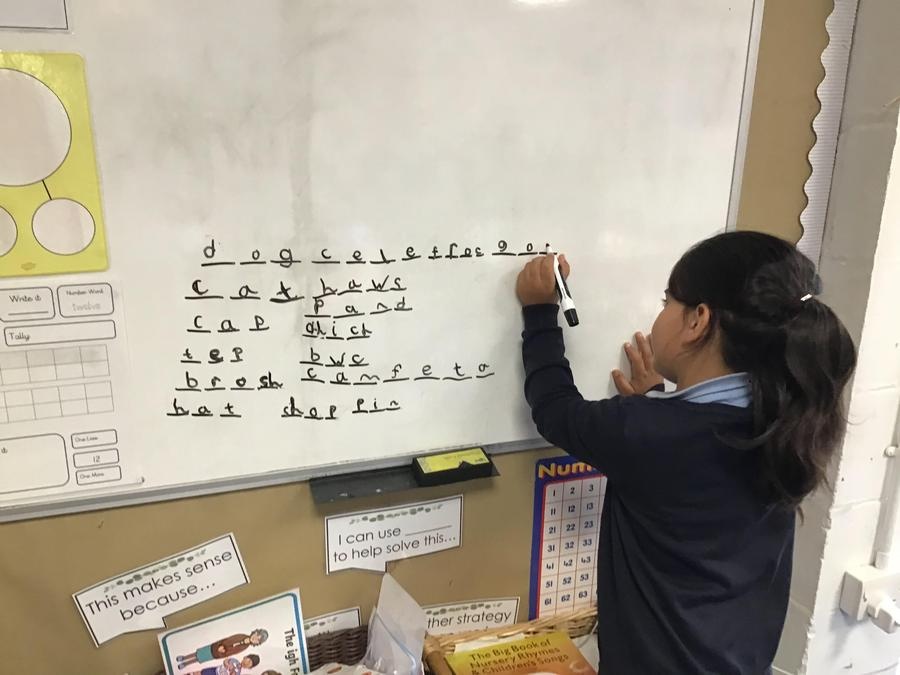 dog celefffos goi
cat haws
pand
cap chich
tep bws
brosh camfeta
hat shop pin
Write it
Number Word
twelve
Tally
One Less
12
One More
I can use ______
to help solve this...
This makes sense
because...
ther strategy
The igh F
Num
1 2 3
11 12 13
21 22 23
31 32 33
41 42 43
51 52 53
61 62 63
The Big Book of
Nursery Rhymes
& Children's Songs